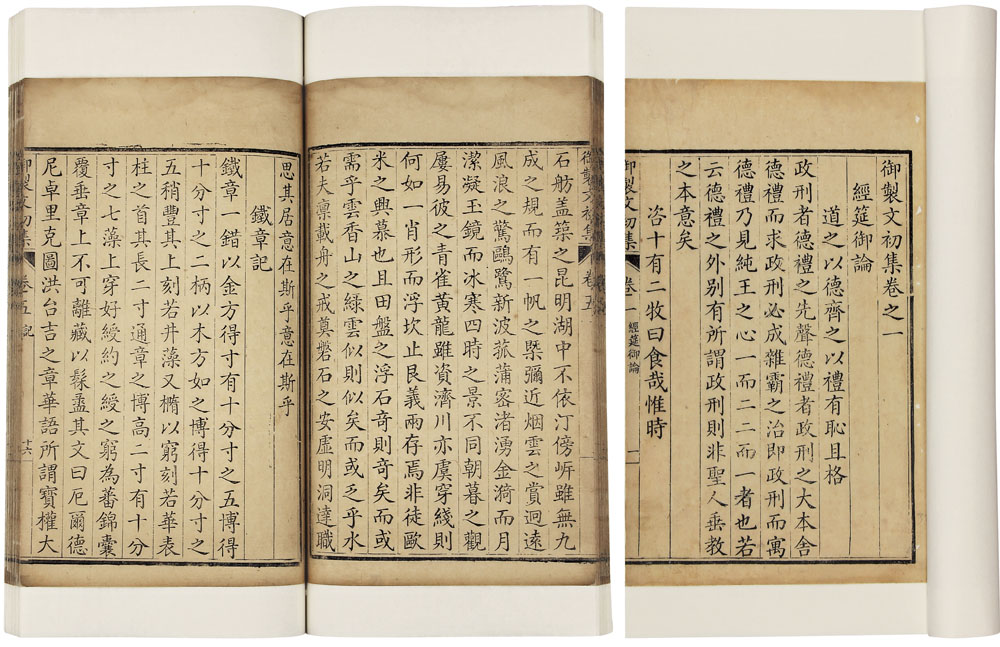 御製文初集卷之一
經筵御論
道之以德齊之以禮有恥且格
政刑者德禮之先聲德禮者政刑之大本舍
德禮而求政刑必成雜霸之治即政刑而寓
德禮乃見純王之心一而二二而一者也若
云德禮之外别有所謂政刑則非聖人垂教
之本意矣
咨十有二牧曰食哉惟時
御製文初集 卷一 經筵御論 一
御製文初集 卷五
石舫盖築之昆明湖中不依汀傍岍雖無九
成之規而有一帆之槩彌近烟雲之賞迥遠
風浪之驚鷗鷺新波菰蒲密渚湧金漪而月
潔凝玉鏡而冰寒四時之景不同朝暮之觀
屢易彼之青雀黄龍雖資濟川亦虞穿綫則
何如一肖形而浮坎止艮義兩存焉非徒歐
米之興慕也且田盤之浮石竒則竒矣而或
需乎雲香山之緑雲似則似矣而或乏乎水
若夫凛載舟之戒奠磐石之安虛明洞達職
思其居意在斯乎意在斯乎
鐵章記
鐵章一錯以金方得寸有十分寸之五博得
十分寸之二柄以木方如之博得十分寸之
五稍豐其上刻若井藻又橢以窮刻若華表
柱之首其長二寸通章之博高二寸有十分
寸之七藻上穿好綬約之綬之窮為蕃錦囊
覆垂章上不可離藏以髹盝其文曰厄爾德
尼卓里克圖洪台吉之章華語所謂寶權大
御製文初集 卷五 記 十六